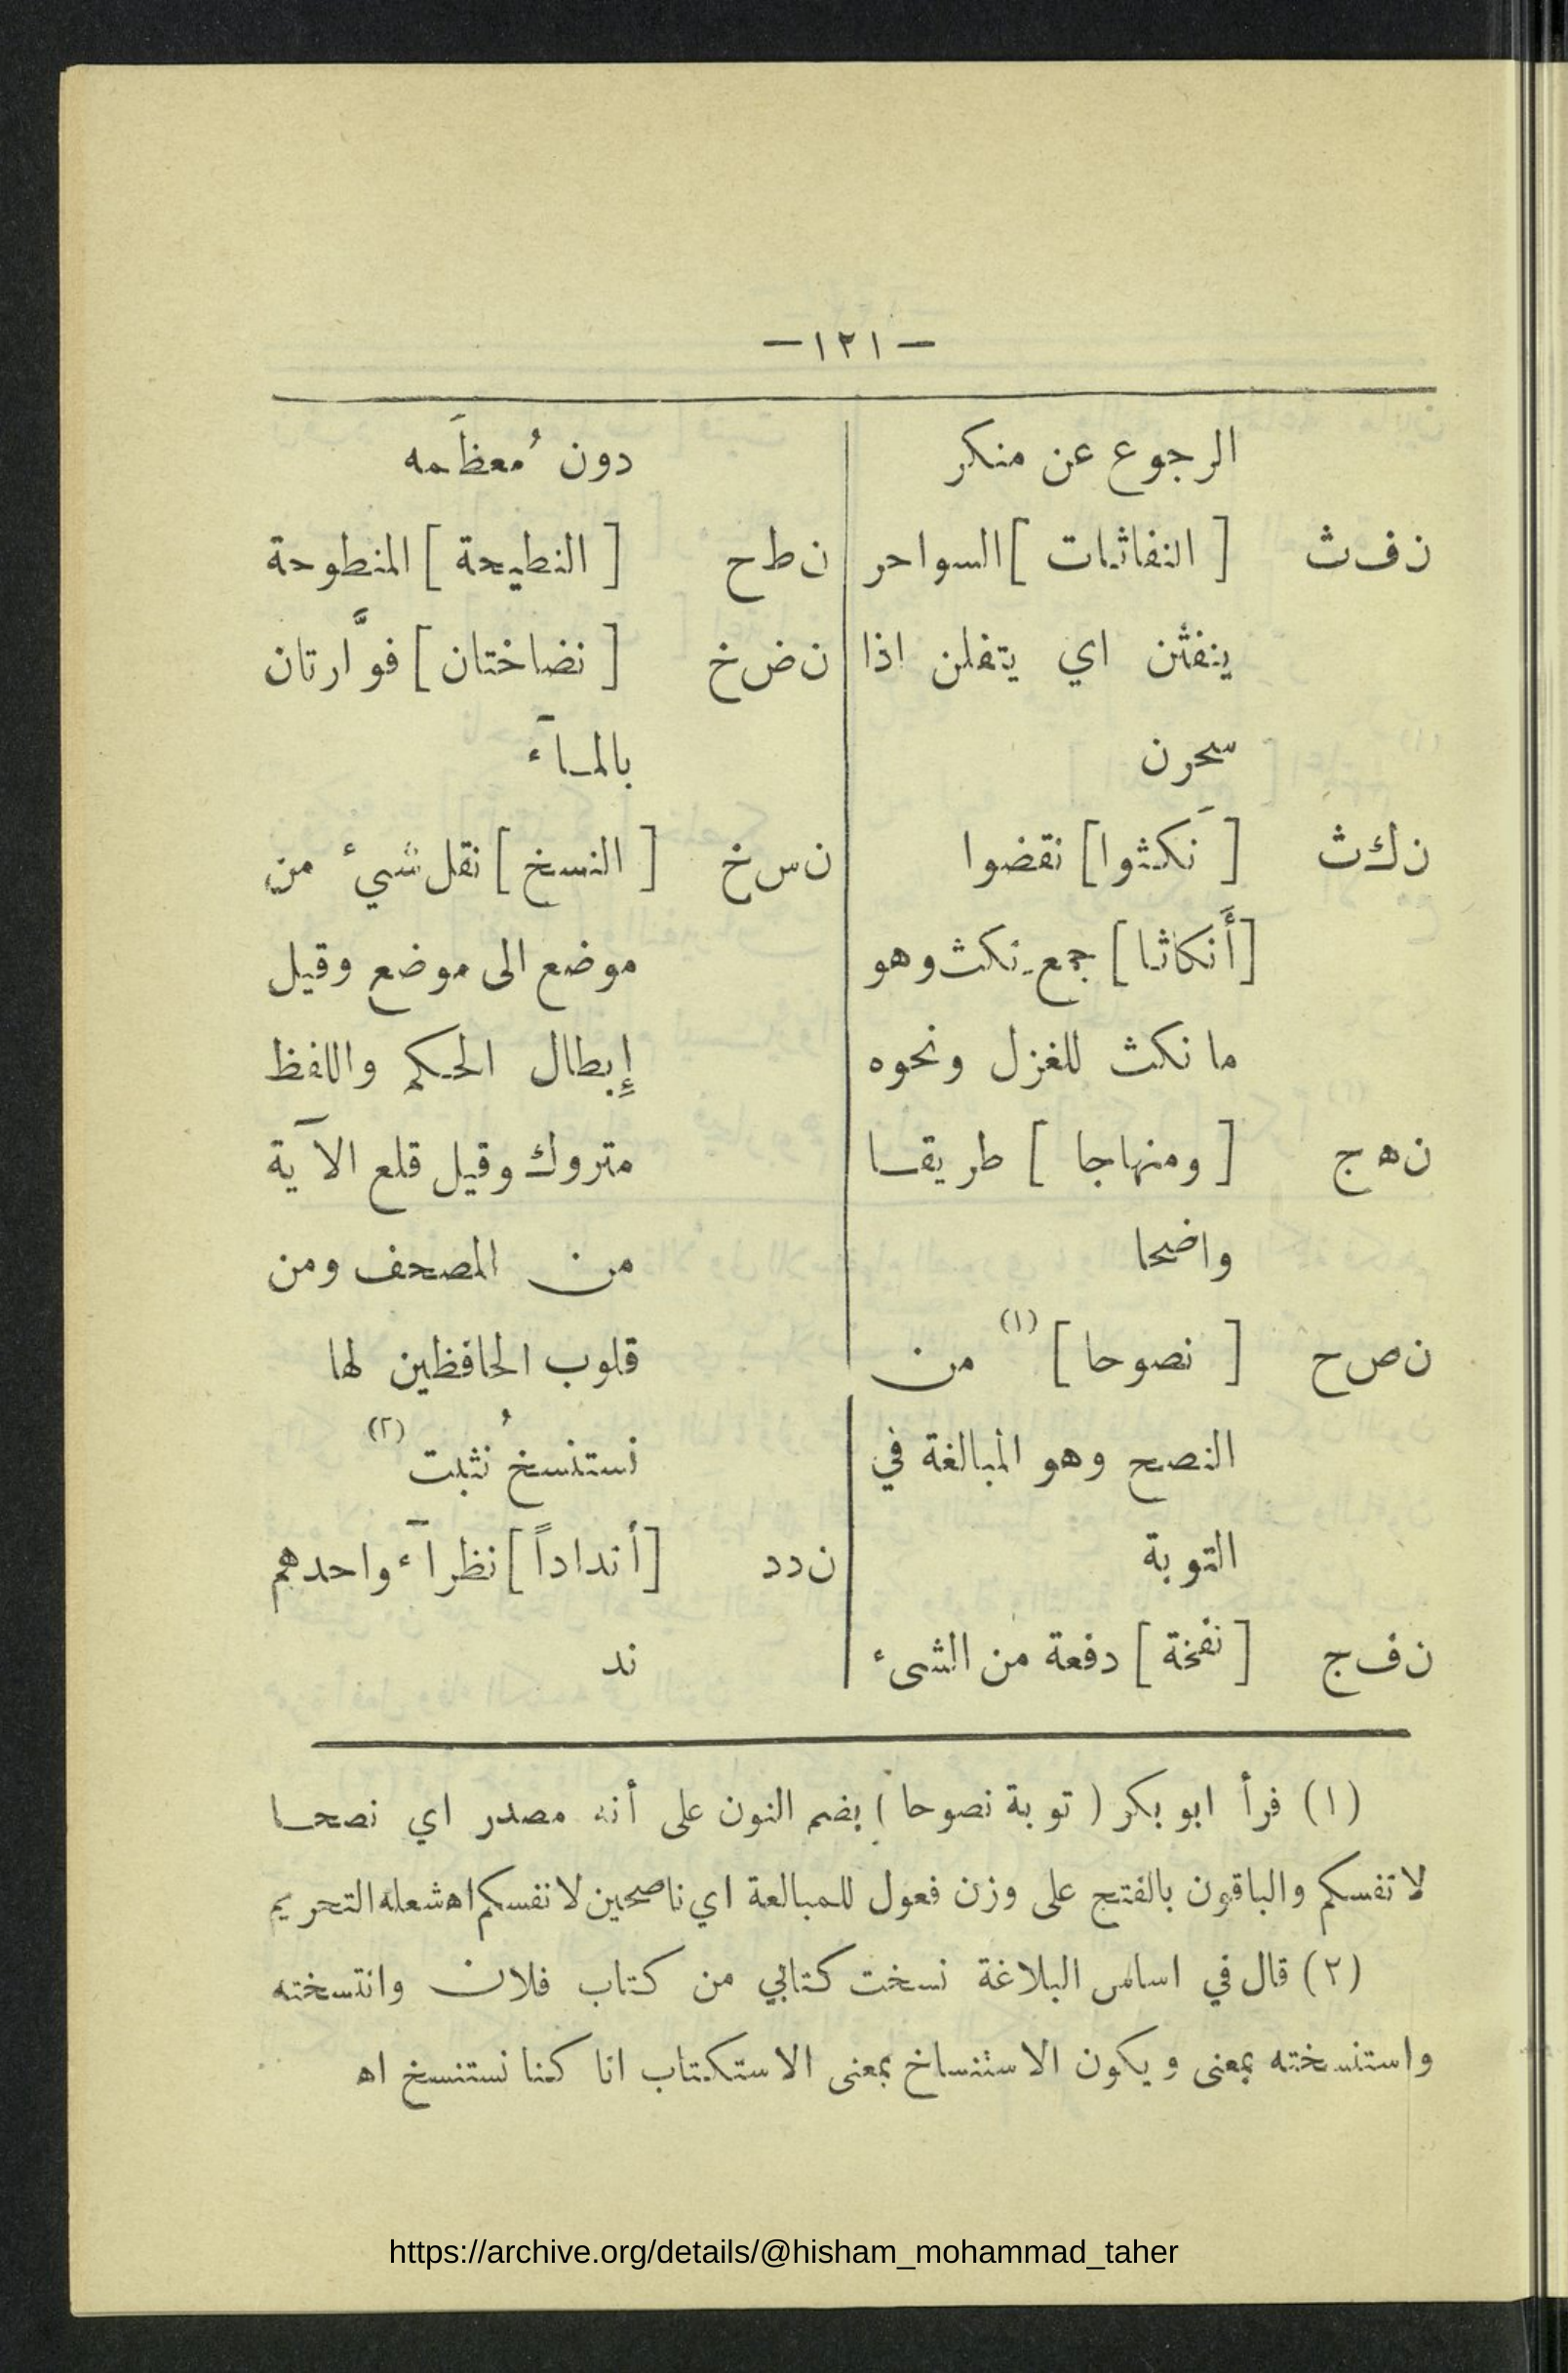 — ١٢١ —
الرجوع عن منكر
ن ف ث [ النفاثات ] السواحر
ينفثن اي يتفلن اذا
سحرن
ن ك ث [ نَكثوا ] نقضوا
[ أَنكاثا ] جمع نكث وهو
ما نكث للغزل ونحوه
ن ه ج [ ومنهاجا ] طريقا
واضحا
ن ص ح [ نصوحا ] (١) من
النصح وهو المبالغة في
التوبة
ن ف ح [ نفخة ] دفعة من الشىء
دون مُعظَمه
ن ط ح [ النطيحة ] المنطوحة
ن ض خ [ نضاختان ] فوَّارتان
بالمآء
ن س خ [ النسخ ] نقل شيء من
موضع الى موضع وقيل
إِبطال الحكم واللفظ
متروك وقيل قلع الآية
من المصحف ومن
قلوب الحافظين لها
نستنسخُ نُثبت (٢)
ن د د [ أنداداً ] نظرآء واحدهم
ند
(١) قرأ ابو بكر ( توبة نصوحا ) بضم النون على أنه مصدر اي نصحا
لانفسكم والباقون بالفتح على وزن فعول للمبالغة اي ناصحين لانفسكم اه شعله التحريم
(٢) قال في اساس البلاغة نسخت كتابي من كتاب فلان وانتسخته
واستنسخته بمعنى ويكون الاستنساخ بمعنى الاستكتاب انا كنا نستنسخ اه
https://archive.org/details/@hisham_mohammad_taher